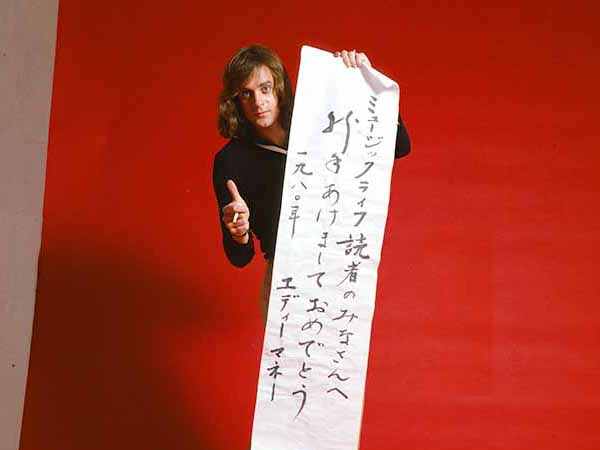 ミュージックライフ読者のみなさんへ
新年あけましておめでとう
一九八〇年
エディーマネー